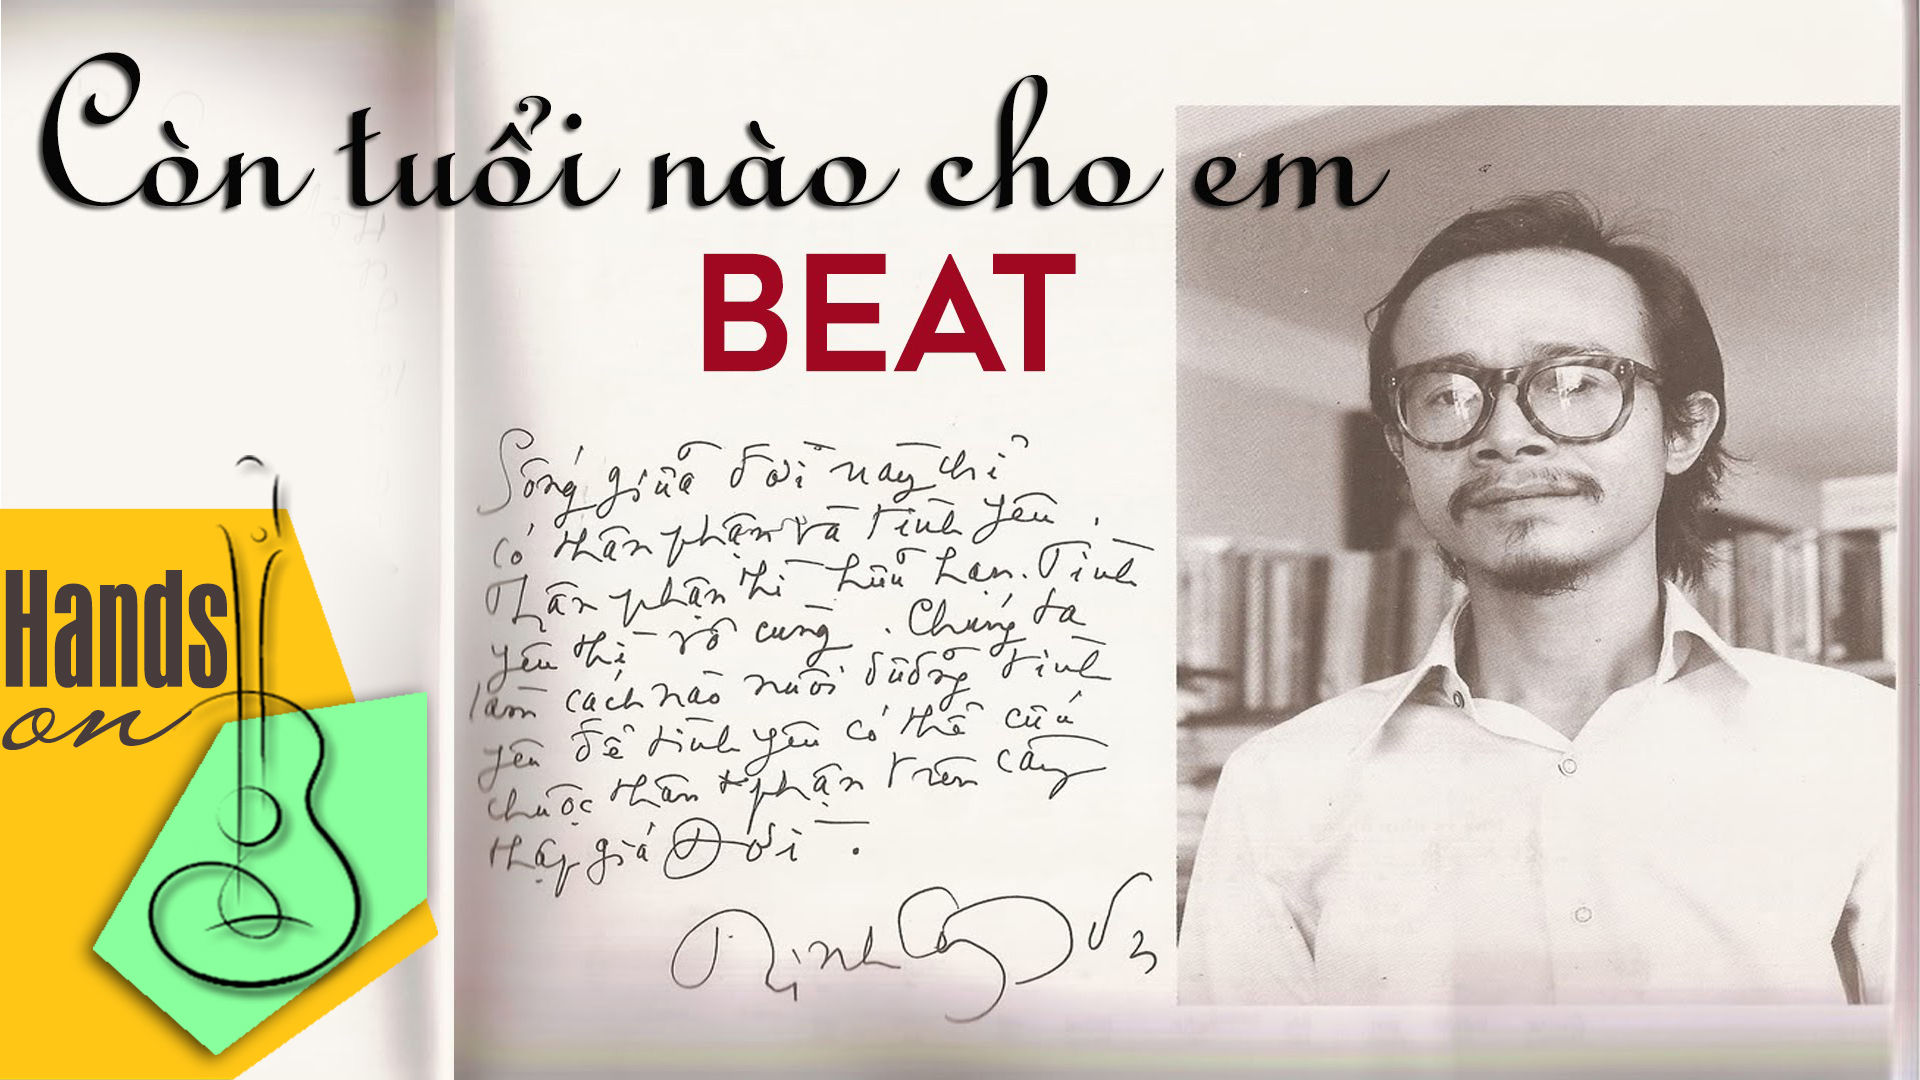 Còn tuổi nào cho em
BEAT
Sống giữa đời này chỉ
có thân phận và tình yêu.
Thân phận thì hữu hạn. Tình
yêu thì vô cùng. Chúng ta
làm cách nào nuôi dưỡng tình
yêu để tình yêu có thể cứu
chuộc thân phận trên cây
thập giá Đời.
Trịnh Công Sơn
Hands
on